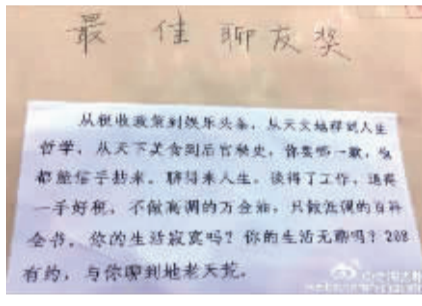 最佳聊友奖
从税收政策到娱乐头条，从天文地理到人生
哲学，从天下美食到后宫秘史，你要哪一款，他
都能信手拈来。聊得来人生，谈得了工作，
一手好税，不做高调的万金油，只做低调的百科
全书。你的生活寂寞吗？你的生活无聊吗？208
有约，与你聊到地老天荒。